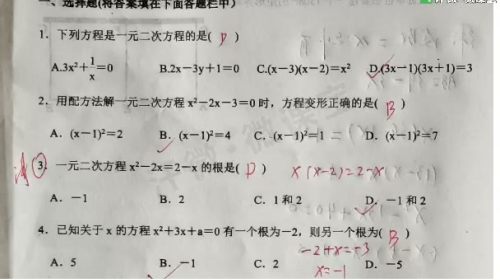 一、选择题(将答案填在下面答题栏中)
1. 下列方程是一元二次方程的是( D )
A.3x²+1/x=0 B.2x-3y+1=0 C.(x-3)(x-2)=x² D.(3x-1)(3x+1)=3
2. 用配方法解一元二次方程 x²-2x-3=0 时，方程变形正确的是( B )
A. (x-1)²=2 B. (x-1)²=4 C. (x-1)²=1 D. (x-1)²=7
3. 一元二次方程 x²-2x=2-x 的根是( D ) x(x-2)=2-x
A. -1 B. 2 C. 1 和 2 D. -1 和 2
4. 已知关于 x 的方程 x²+3x+a=0 有一个根为-2，则另一个根为( B )
-2+x=-3
A. 5 B. -1 C. 2 D. -5
x=-1